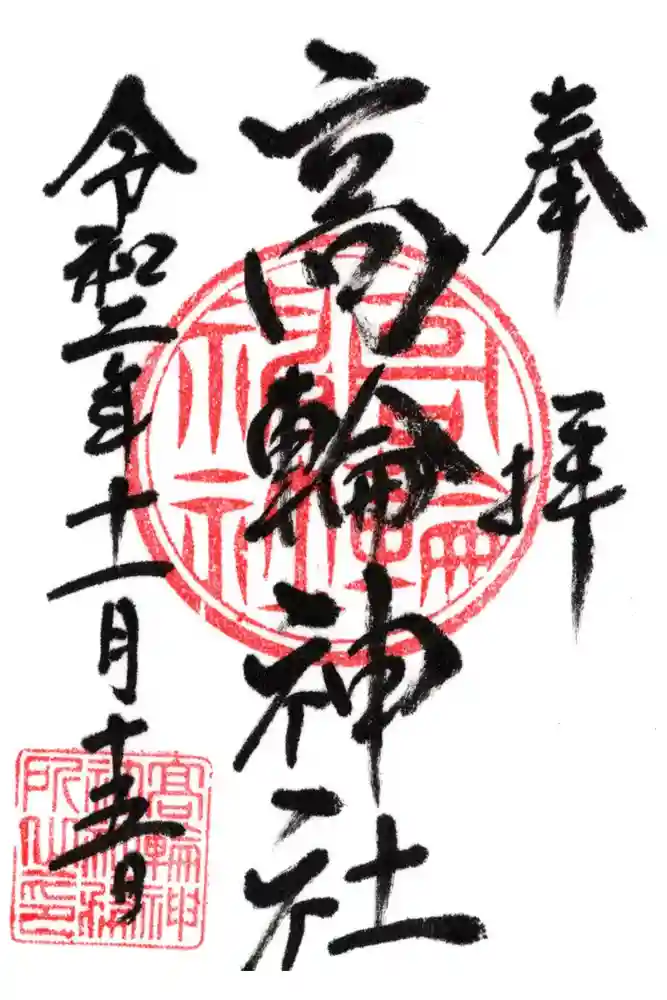 奉拝
高輪神社
令和二年十一月十五日
高輪
神社
高輪神
社社務
所之印